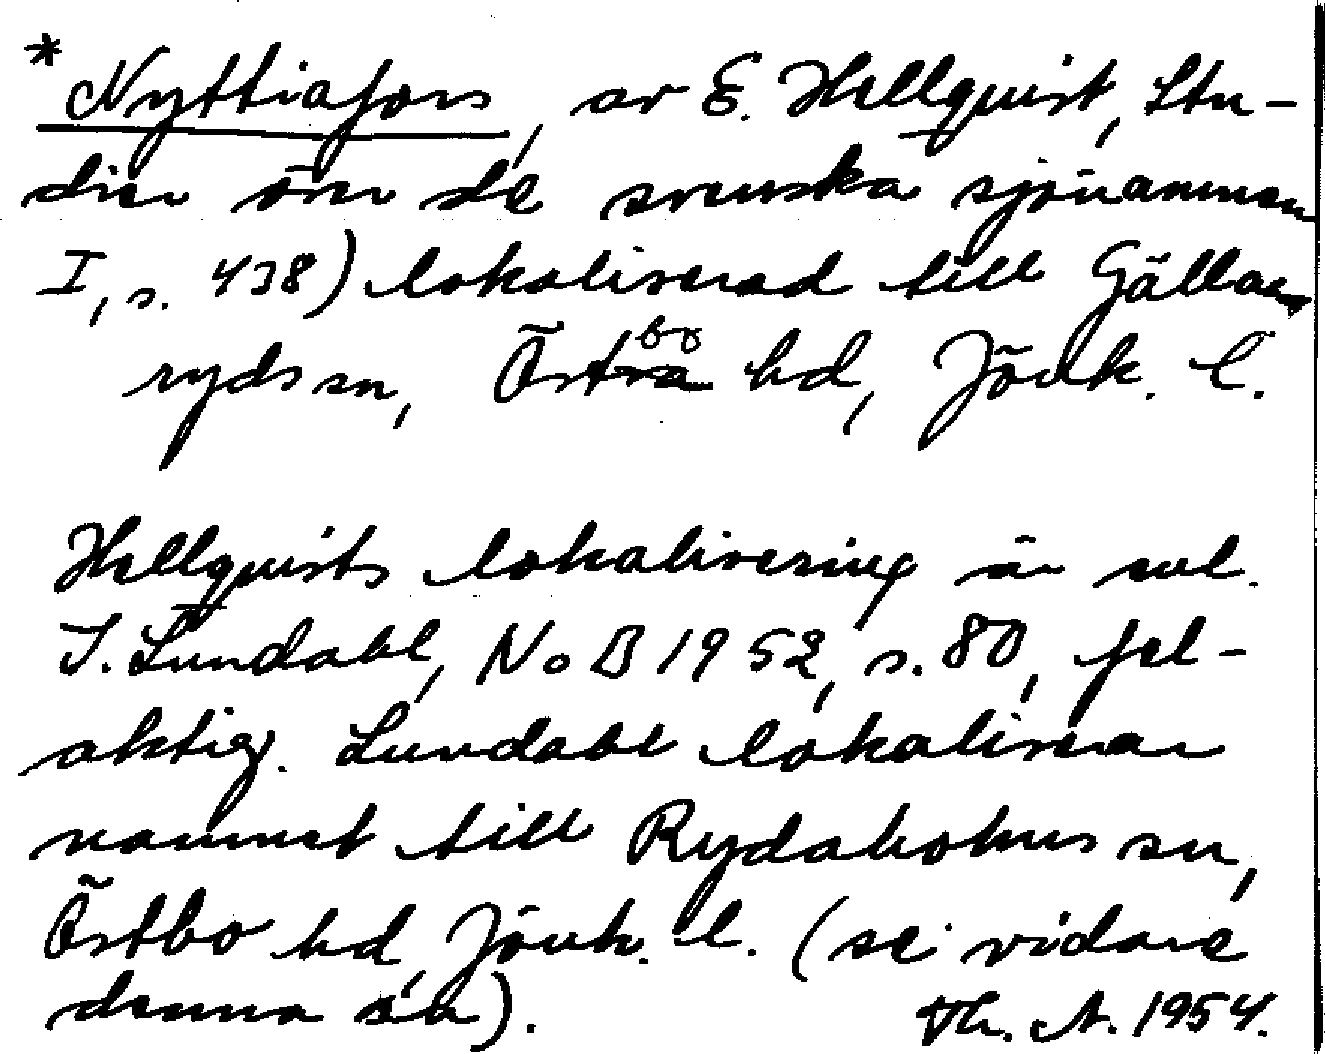 * Nyttiafors, av E. Hellquist, Stu-
dier över de svenska sjönamnen
I, s. 438) lokaliserad till Gällar
rydssn, Östbo hd, Jönk. l.
Hellquists lokalisering är enl.
I. Lundahl, NoB 1952, s. 80, fel-
aktig. Lundahl lokaliserar
namnet till Rydaholms sn,
Östbo hd, Jönk. l. (se vidare
denna sn).
Th. A. 1954.